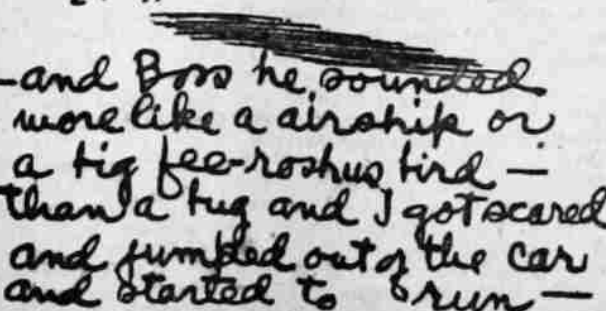 -and Boss he sounded
more like a airship or
a big fee-roshus bird —
than a bug and I got scared
and jumped out of the car
and started to run —